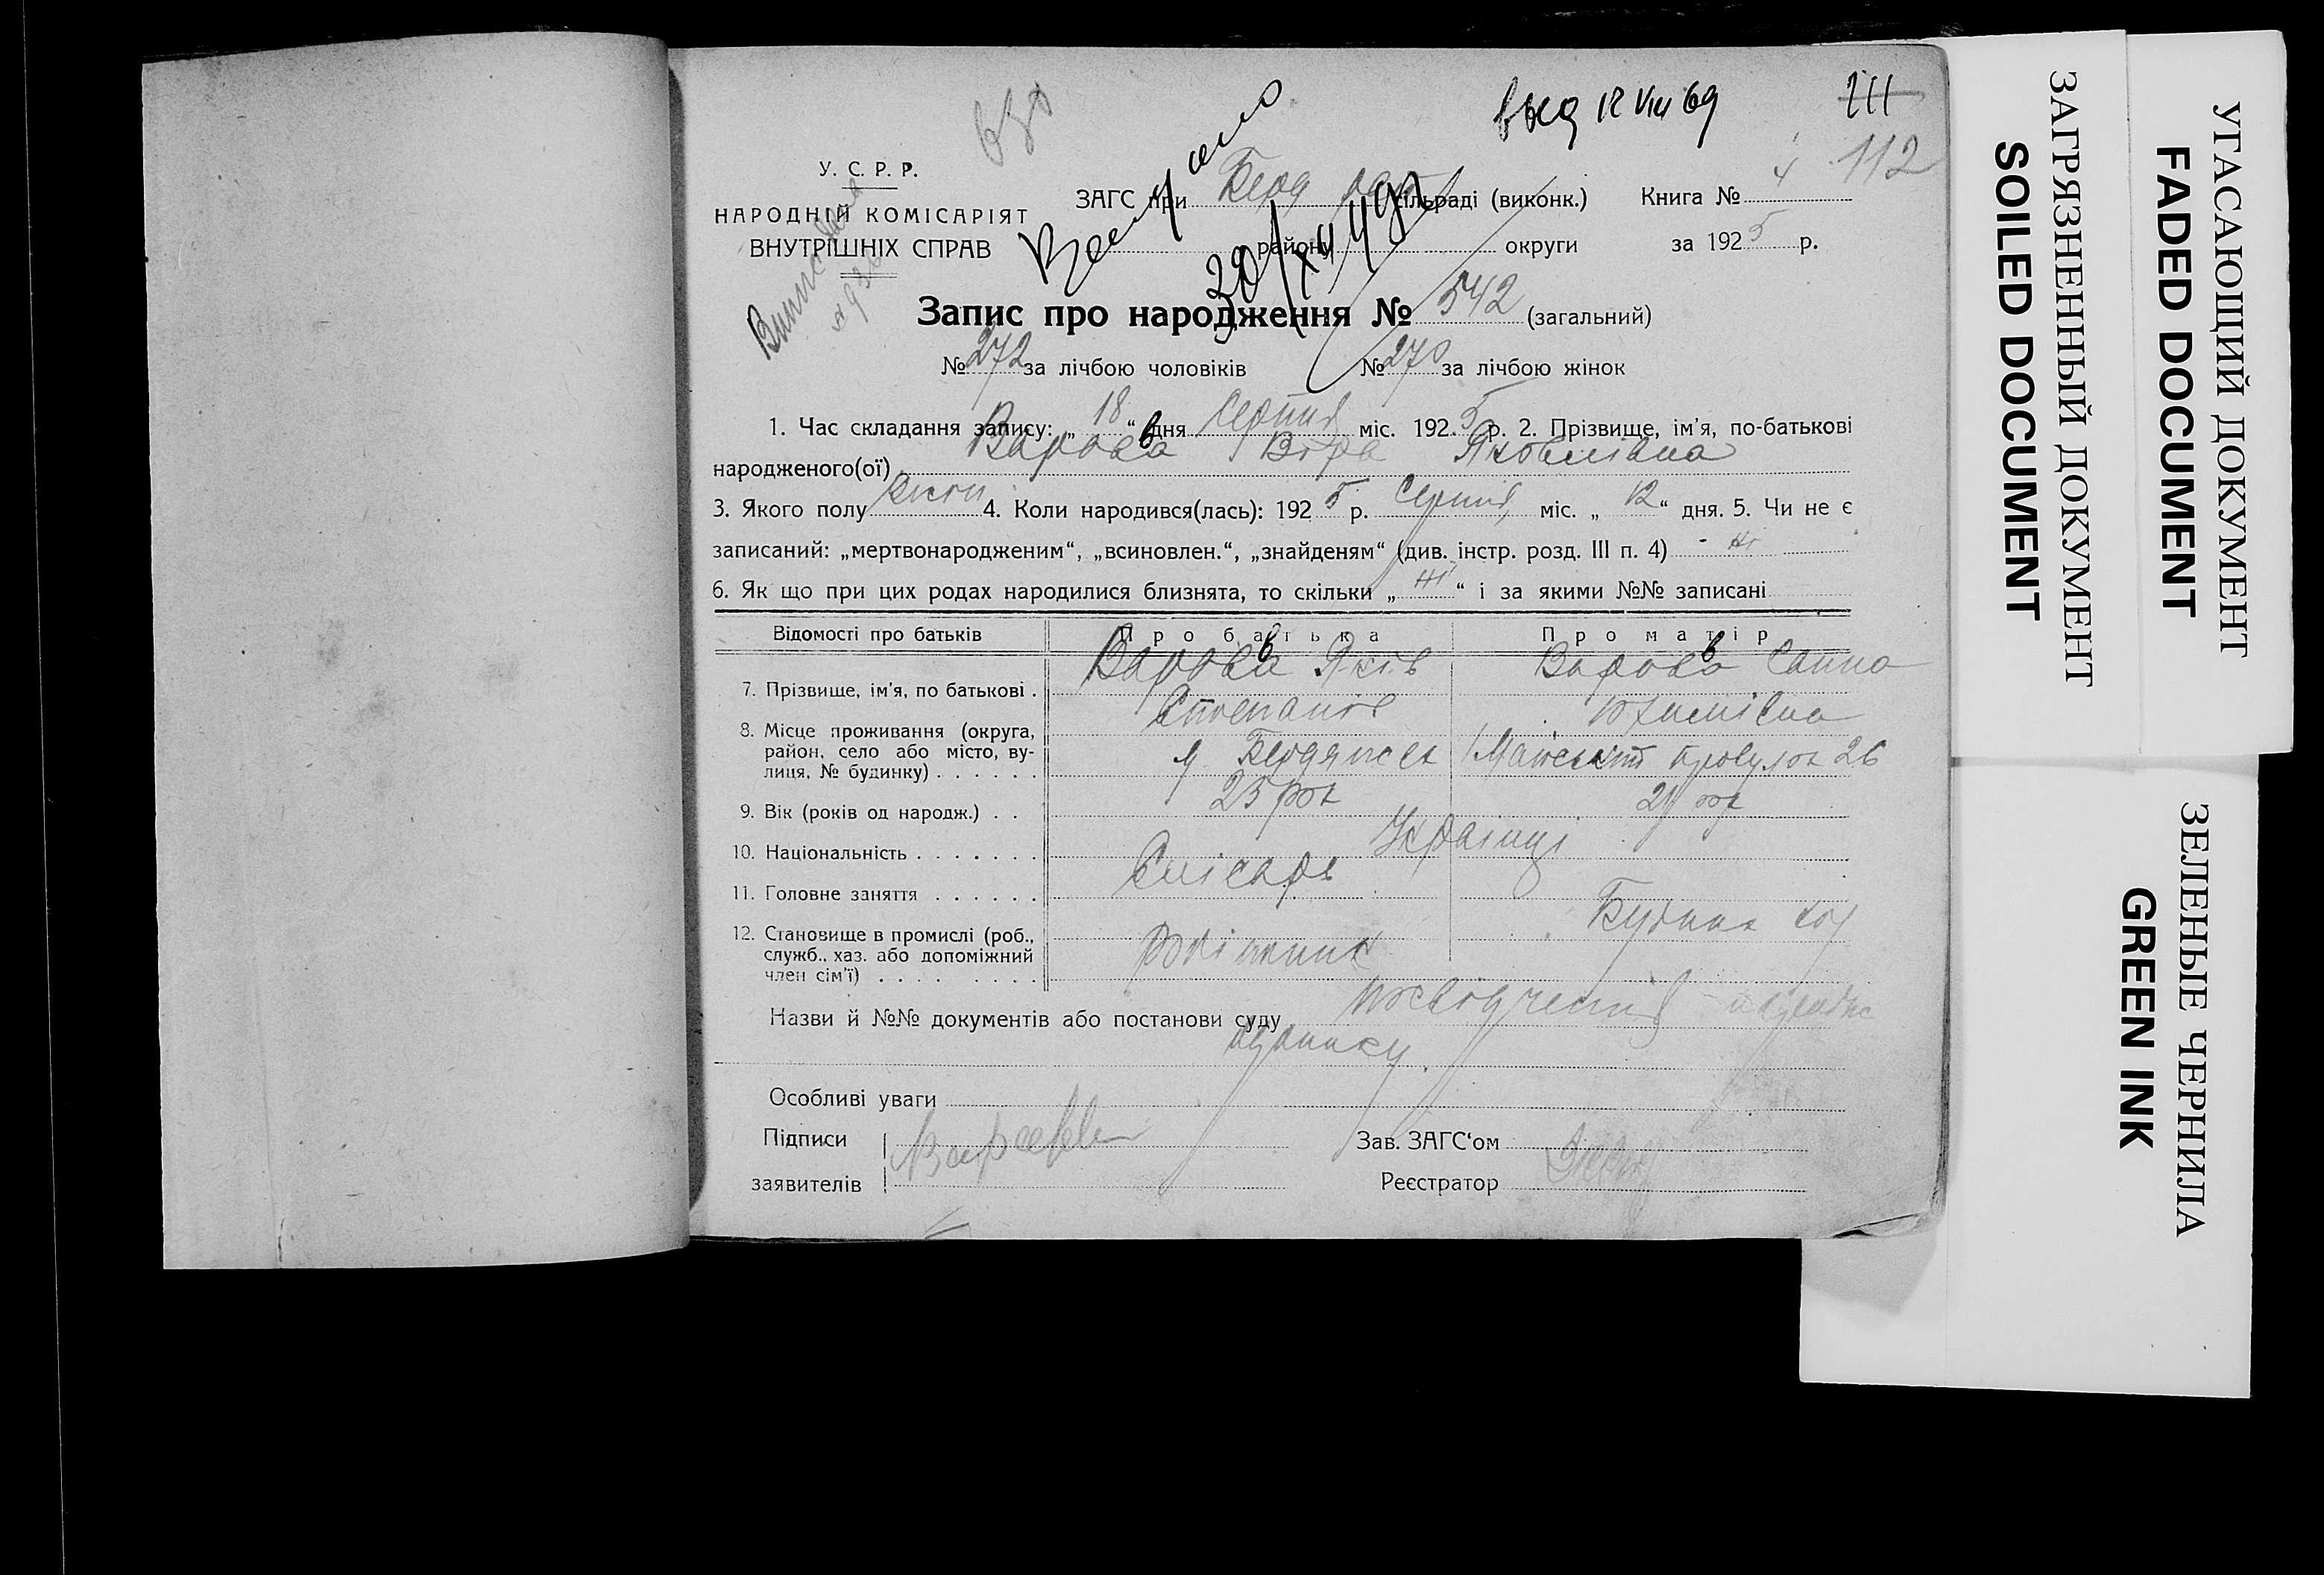 вид 12 VIII 69
111
112
У. С. Р. Р.
НАРОДНІЙ КОМІСАРІЯТ
ВНУТРІШНІХ СПРАВ
ЗАГС при Берд сільраді (виконк.) Книга № 4
району округи за 1925 р.
Запис про народження № 542 (загальний)
№ 272 за лічбою чоловіків № 270 за лічбою жінок
1. Час складання запису: „ 18 “ дня Серпня міс. 1925 р. 2. Прізвище, ім'я, по-батькові
народженого(ої) Варава Віра Яковлівна
3. Якого полу жіноч 4. Коли народився(лась): 1925 р. Серпня міс. „ 12 “ дня. 5. Чи не є
записаний: „мертвонародженим“, „всиновлен.“, „знайденям“ (див. інстр. розд. III п. 4) - ні
6. Як що при цих родах народилися близнята, то скільки „ ні “ і за якими №№ записані
Відомості про батьків Про батька Про матір
7. Прізвище, ім'я, по батькові . Варава Яків Варава Ганна
Степанів Юхимівна
8. Місце проживання (округа,
район, село або місто, ву-
лиця, № будинку) . . . . . . м. Бердянськ Майський провулок 26
9. Вік (років од народж.) . . 23 рок 21 рок
10. Національність . . . . . . . Українці
11. Головне заняття . . . . . . Слісарь
12. Становище в промислі (роб.,
служб., хаз. або допоміжний
член сім'ї) . . . . . . . . Робітник
Назви й №№ документів або постанови суду посвідчення
Особливі уваги
Підписи
заявителів
Варавва
Зав. ЗАГС‘ом
Реєстратор
УГАСАЮЩИЙ ДОКУМЕНТ
FADED DOCUMENT
ЗАГРЯЗНЕННЫЙ ДОКУМЕНТ
SOILED DOCUMENT
ЗЕЛЕНЫЕ ЧЕРНИЛА
GREEN INK